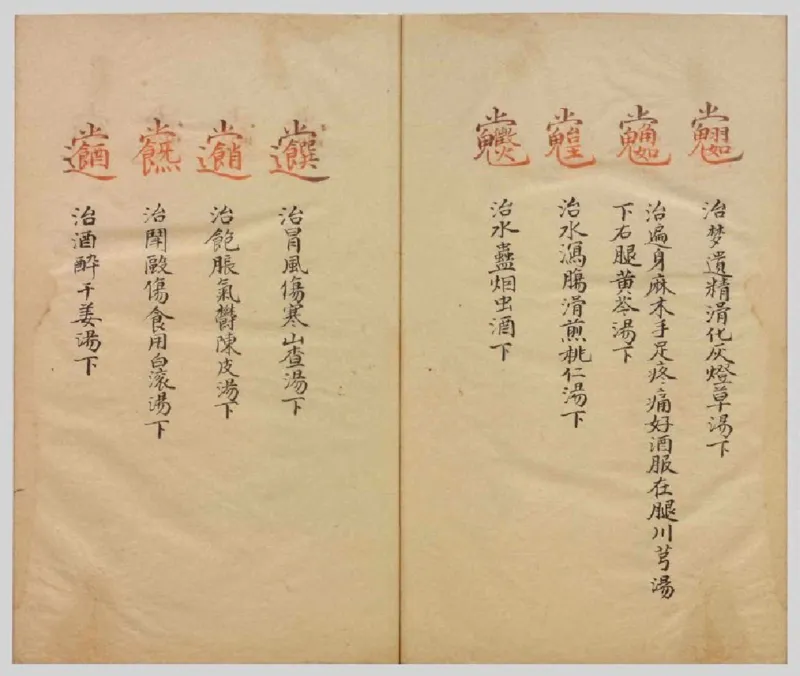 治梦遺精滑化灰燈草湯下
治遍身麻木手足疼痛好酒服在腿川芎湯
下右腿黄芩湯下
治水瀉腸滑煎桃仁湯下
治水蠱烟虫酒下
治冒風傷寒山查湯下
治飽脹氣鬱陳皮湯下
治鬧毆傷食用白滚湯下
治酒醉干姜湯下